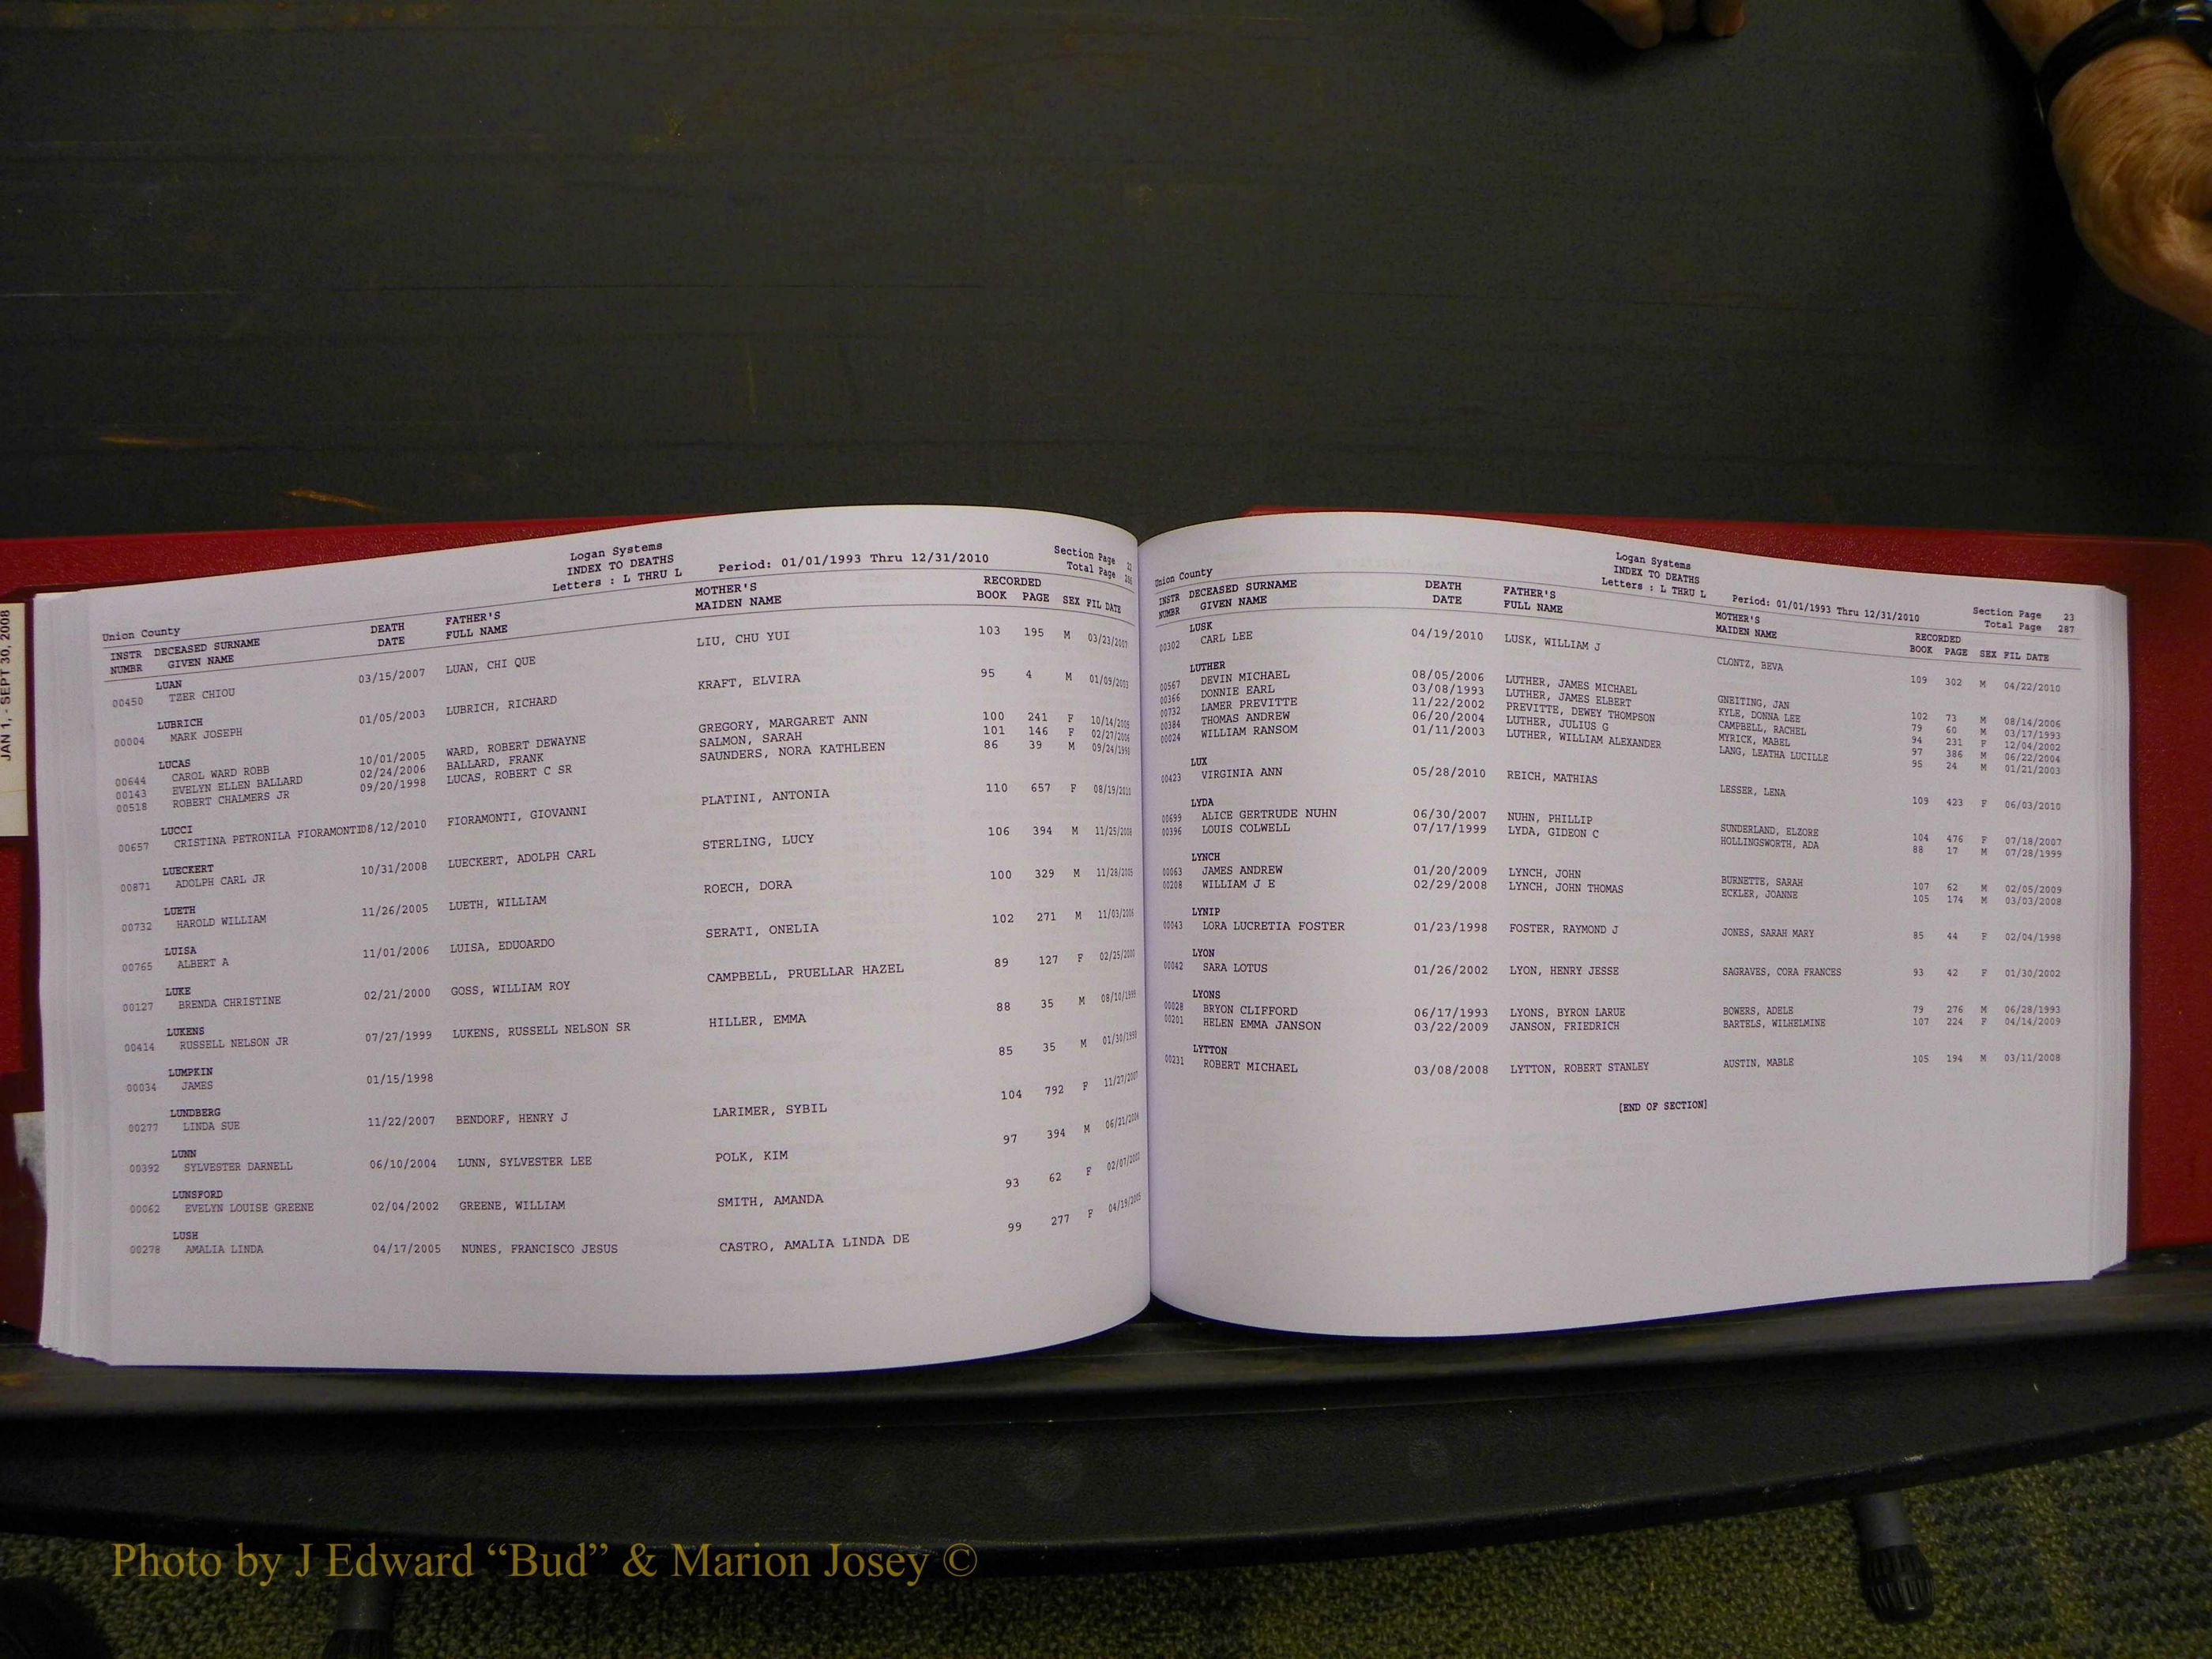 JAN 1, - SEPT 30, 2008
Logan Systems
INDEX TO DEATHS
Letters : L THRU L Period: 01/01/1993 Thru 12/31/2010
Section Page
Total Page
Union County
INSTR DECEASED SURNAME DEATH FATHER'S MOTHER'S RECORDED
NUMBR GIVEN NAME DATE FULL NAME MAIDEN NAME BOOK PAGE SEX FIL DATE
LUAN
00450 TZER CHIOU 03/15/2007 LUAN, CHI QUE LIU, CHU YUI 103 195 M 03/23/2007
LUBRICH
00004 MARK JOSEPH 01/05/2003 LUBRICH, RICHARD KRAFT, ELVIRA 95 4 M 01/09/2003
LUCAS
00644 CAROL WARD ROBB 10/01/2005 WARD, ROBERT DEWAYNE GREGORY, MARGARET ANN 100 241 F 10/14/2005
00143 EVELYN ELLEN BALLARD 02/24/2006 BALLARD, FRANK SALMON, SARAH 101 146 F 02/27/2006
00518 ROBERT CHALMERS JR 09/20/1998 LUCAS, ROBERT C SR SAUNDERS, NORA KATHLEEN 86 39 M 09/24/1998
LUCCI
00657 CRISTINA PETRONILA FIORAMONTI08/12/2010 FIORAMONTI, GIOVANNI PLATINI, ANTONIA 110 657 F 08/19/2010
LUECKERT
00871 ADOLPH CARL JR 10/31/2008 LUECKERT, ADOLPH CARL STERLING, LUCY 106 394 M 11/25/2008
LUETH
00732 HAROLD WILLIAM 11/26/2005 LUETH, WILLIAM ROECH, DORA 100 329 M 11/28/2005
LUISA
00765 ALBERT A 11/01/2006 LUISA, EDUOARDO SERATI, ONELIA 102 271 M 11/03/2006
LUKE
00127 BRENDA CHRISTINE 02/21/2000 GOSS, WILLIAM ROY CAMPBELL, PRUELLAR HAZEL 89 127 F 02/25/2000
LUKENS
00414 RUSSELL NELSON JR 07/27/1999 LUKENS, RUSSELL NELSON SR HILLER, EMMA 88 35 M 08/10/1999
LUMPKIN
00034 JAMES 01/15/1998 85 35 M 01/30/1998
LUNDBERG
00277 LINDA SUE 11/22/2007 BENDORF, HENRY J LARIMER, SYBIL 104 792 F 11/27/2007
LUNN
00392 SYLVESTER DARNELL 06/10/2004 LUNN, SYLVESTER LEE POLK, KIM 97 394 M 06/21/2004
LUNSFORD
00062 EVELYN LOUISE GREENE 02/04/2002 GREENE, WILLIAM SMITH, AMANDA 93 62 F 02/07/2002
LUSH
00278 AMALIA LINDA 04/17/2005 NUNES, FRANCISCO JESUS CASTRO, AMALIA LINDA DE 99 277 F 04/19/2005
Logan Systems
INDEX TO DEATHS
Letters : L THRU L Period: 01/01/1993 Thru 12/31/2010
Section Page 23
Total Page 287
Union County
INSTR DECEASED SURNAME DEATH FATHER'S MOTHER'S RECORDED
NUMBR GIVEN NAME DATE FULL NAME MAIDEN NAME BOOK PAGE SEX FIL DATE
LUSK
00302 CARL LEE 04/19/2010 LUSK, WILLIAM J CLONTZ, BEVA 109 302 M 04/22/2010
LUTHER
00567 DEVIN MICHAEL 08/05/2006 LUTHER, JAMES MICHAEL GNEITING, JAN 102 73 M 08/14/2006
00366 DONNIE EARL 03/08/1993 LUTHER, JAMES ELBERT KYLE, DONNA LEE 79 60 M 03/17/1993
00732 LAMER PREVITTE 11/22/2002 PREVITTE, DEWEY THOMPSON CAMPBELL, RACHEL 94 231 F 12/04/2002
00384 THOMAS ANDREW 06/20/2004 LUTHER, JULIUS G MYRICK, MABEL 97 386 M 06/22/2004
00024 WILLIAM RANSOM 01/11/2003 LUTHER, WILLIAM ALEXANDER LANG, LEATHA LUCILLE 95 24 M 01/21/2003
LUX
00423 VIRGINIA ANN 05/28/2010 REICH, MATHIAS LESSER, LENA 109 423 F 06/03/2010
LYDA
00699 ALICE GERTRUDE NUHN 06/30/2007 NUHN, PHILLIP SUNDERLAND, ELZORE 104 476 F 07/18/2007
00396 LOUIS COLWELL 07/17/1999 LYDA, GIDEON C HOLLINGSWORTH, ADA 88 17 M 07/28/1999
LYNCH
00063 JAMES ANDREW 01/20/2009 LYNCH, JOHN BURNETTE, SARAH 107 62 M 02/05/2009
00208 WILLIAM J E 02/29/2008 LYNCH, JOHN THOMAS ECKLER, JOANNE 105 174 M 03/03/2008
LYNIP
00043 LORA LUCRETIA FOSTER 01/23/1998 FOSTER, RAYMOND J JONES, SARAH MARY 85 44 F 02/04/1998
LYON
00042 SARA LOTUS 01/26/2002 LYON, HENRY JESSE SAGRAVES, CORA FRANCES 93 42 F 01/30/2002
LYONS
00028 BRYON CLIFFORD 06/17/1993 LYONS, BYRON LARUE BOWERS, ADELE 79 276 M 06/28/1993
00201 HELEN EMMA JANSON 03/22/2009 JANSON, FRIEDRICH BARTELS, WILHELMINE 107 224 F 04/14/2009
LYTTON
00231 ROBERT MICHAEL 03/08/2008 LYTTON, ROBERT STANLEY AUSTIN, MABLE 105 194 M 03/11/2008
[END OF SECTION]
Photo by J Edward “Bud” & Marion Josey ©